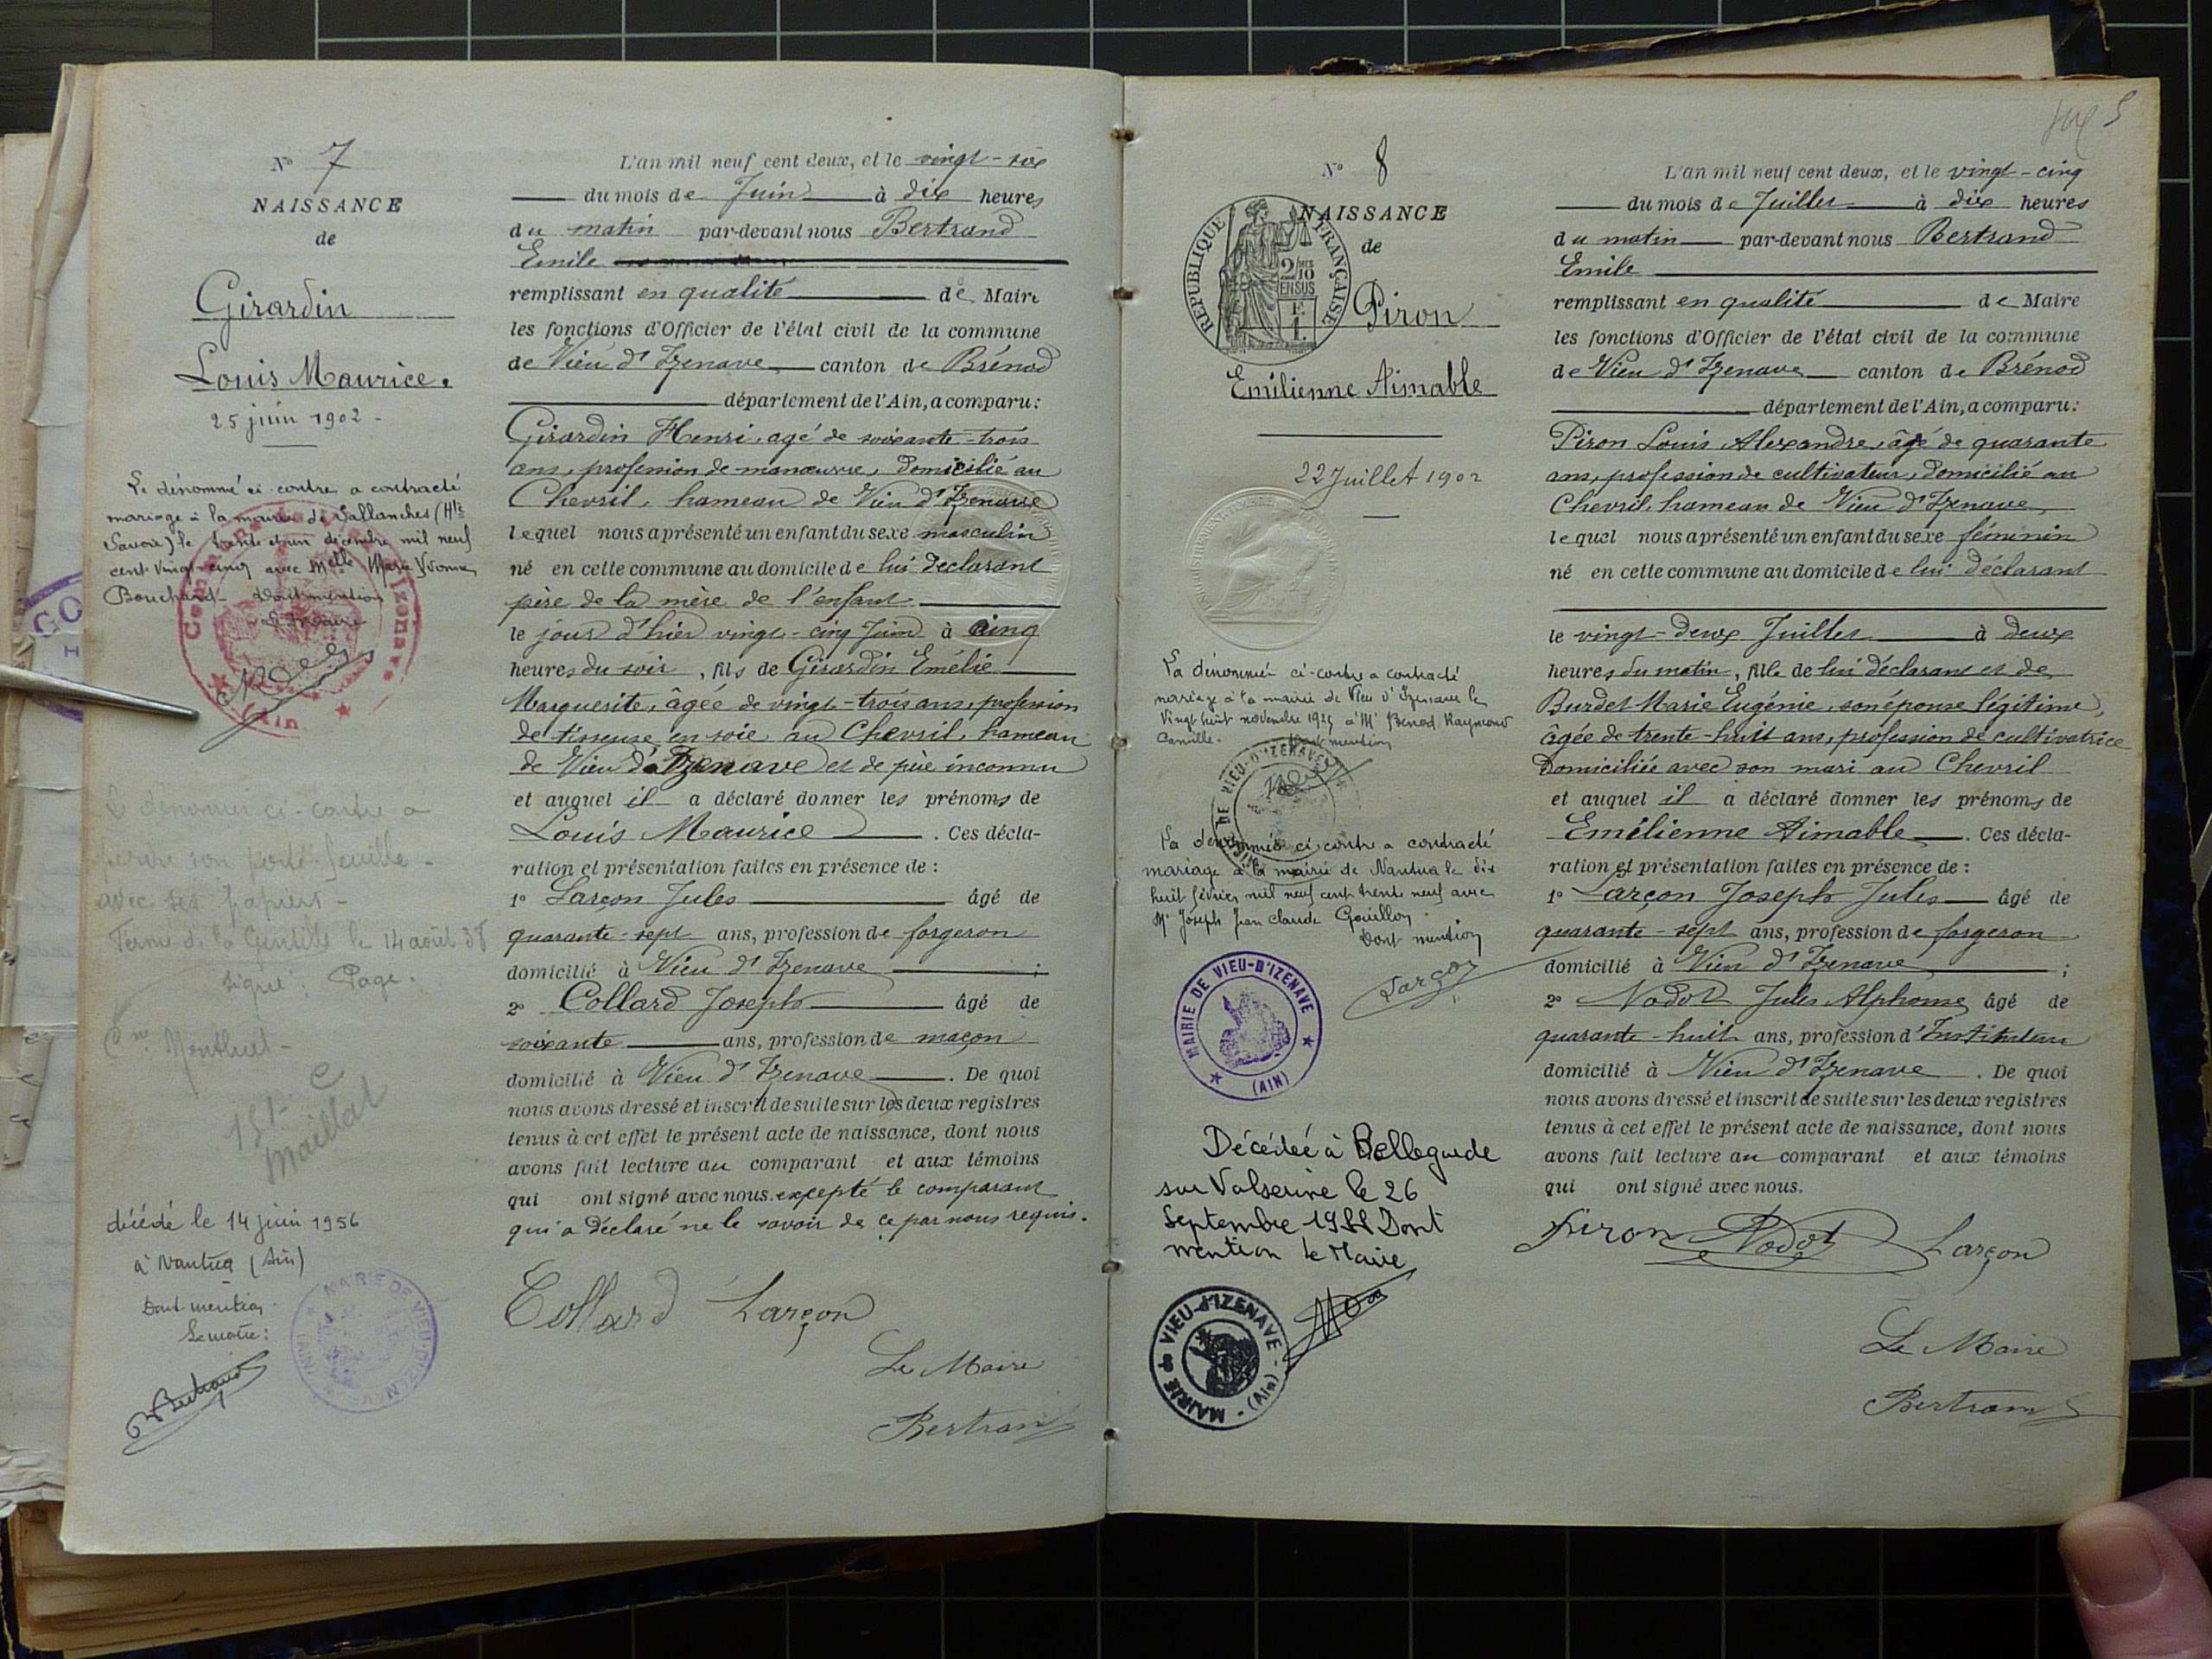 N° 7
NAISSANCE
de
Girardin
Louis Maurice.
25 juin 1902 -
Le dénommé ci-contre a contracté
mariage à la mairie de Sallanches (Hte
Savoie) le trente et un décembre mil neuf
cent vingt-cinq avec Melle Marie Yvonne
Bouchard dont mention
Le Maire
Le dénommé ci-contre a
perdu son porte-feuille -
avec ses papiers -
Ferme de la Gentille le 14 août 38
signé: Page.
Montluel -
Maillat
décédé le 14 juin 1956
à Nantua (Ain)
Dont mention
Le maire:
Bertrand
MAIRIE DE VIEU-D'IZENAVE
L'an mil neuf cent deux, et le vingt-six
du mois de Juin à dix heures
du matin par-devant nous Bertrand
Emile
remplissant en qualité de Maire
les fonctions d'Officier de l'état civil de la commune
de Vieu d'Izenave canton de Brénod
département de l'Ain, a comparu:
Girardin Henri, agé de soixante-trois
ans, profession de manœuvre, domicilié au
Chevril, hameau de Vieu d'Izenave
lequel nous a présenté un enfant du sexe masculin
né en cette commune au domicile de lui déclarant
père de la mère de l'enfant
le jour d'hier vingt-cinq Juin à cinq
heures du soir, fils de Girardin Emélie
Marguerite, âgée de vingt-trois ans, profession
de tisseuse en soie au Chevril, hameau
de Vieu d'Izenave et de père inconnu
et auquel il a déclaré donner les prénoms de
Louis Maurice. Ces décla-
ration et présentation faites en présence de:
1° Larçon Jules âgé de
quarante-sept ans, profession de forgeron
domicilié à Vieu d'Izenave;
2° Collard Joseph âgé de
soixante ans, profession de maçon
domicilié à Vieu d'Izenave. De quoi
nous avons dressé et inscrit de suite sur les deux registres
tenus à cet effet le présent acte de naissance, dont nous
avons fait lecture au comparant et aux témoins
qui ont signé avec nous. excepté le comparant
qui a déclaré ne le savoir de ce par nous requis.
Collard Larçon
Le Maire
Bertrand
N° 8
NAISSANCE
de
REPUBLIQUE FRANÇAISE
2/10
EN SUS
Piron
Emilienne Aimable
22 Juillet 1902
La dénommée ci-contre a contracté
mariage à la mairie de Vieu d'Izenave le
vingt huit novembre 1925 à Mr Benod Raymond
Camille. Dont mention
MAIRIE DE VIEU-D'IZENAVE
La dénommée ci-contre a contracté
mariage à la mairie de Nantua le dix
huit février mil neuf cent trente neuf avec
Mr Joseph Jean Claude Gouillon.
Dont mention
Larçon
MAIRIE DE VIEU-D'IZENAVE
(AIN)
Décédée à Bellegarde
sur Valserine le 26
Septembre Dont
mention le Maire
MAIRIE de VIEU-d'IZENAVE - (Ain) -
5
L'an mil neuf cent deux, et le vingt-cinq
du mois de Juillet à dix heures
du matin par-devant nous Bertrand
Emile
remplissant en qualité de Maire
les fonctions d'Officier de l'état civil de la commune
de Vieu d'Izenave canton de Brénod
département de l'Ain, a comparu:
Piron Louis Alexandre, âgé de quarante
ans, profession de cultivateur, domicilié au
Chevril, hameau de Vieu d'Izenave
lequel nous a présenté un enfant du sexe féminin
né en cette commune au domicile de lui déclarant
le vingt-deux Juillet à deux
heures du matin, fille de lui déclarant et de
Burdet Marie Eugénie, son épouse légitime,
âgée de trente-huit ans, profession de cultivatrice
domiciliée avec son mari au Chevril
et auquel il a déclaré donner les prénoms de
Emélienne Aimable. Ces décla-
ration et présentation faites en présence de:
1° Larçon Joseph Jules âgé de
quarante-sept ans, profession de forgeron
domicilié à Vieu d'Izenave;
2° Nodot Jules Alphonse âgé de
quarante-huit ans, profession d'Instituteur
domicilié à Vieu d'Izenave. De quoi
nous avons dressé et inscrit de suite sur les deux registres
tenus à cet effet le présent acte de naissance, dont nous
avons fait lecture au comparant et aux témoins
qui ont signé avec nous.
Piron Nodot Larçon
Le Maire
Bertrand